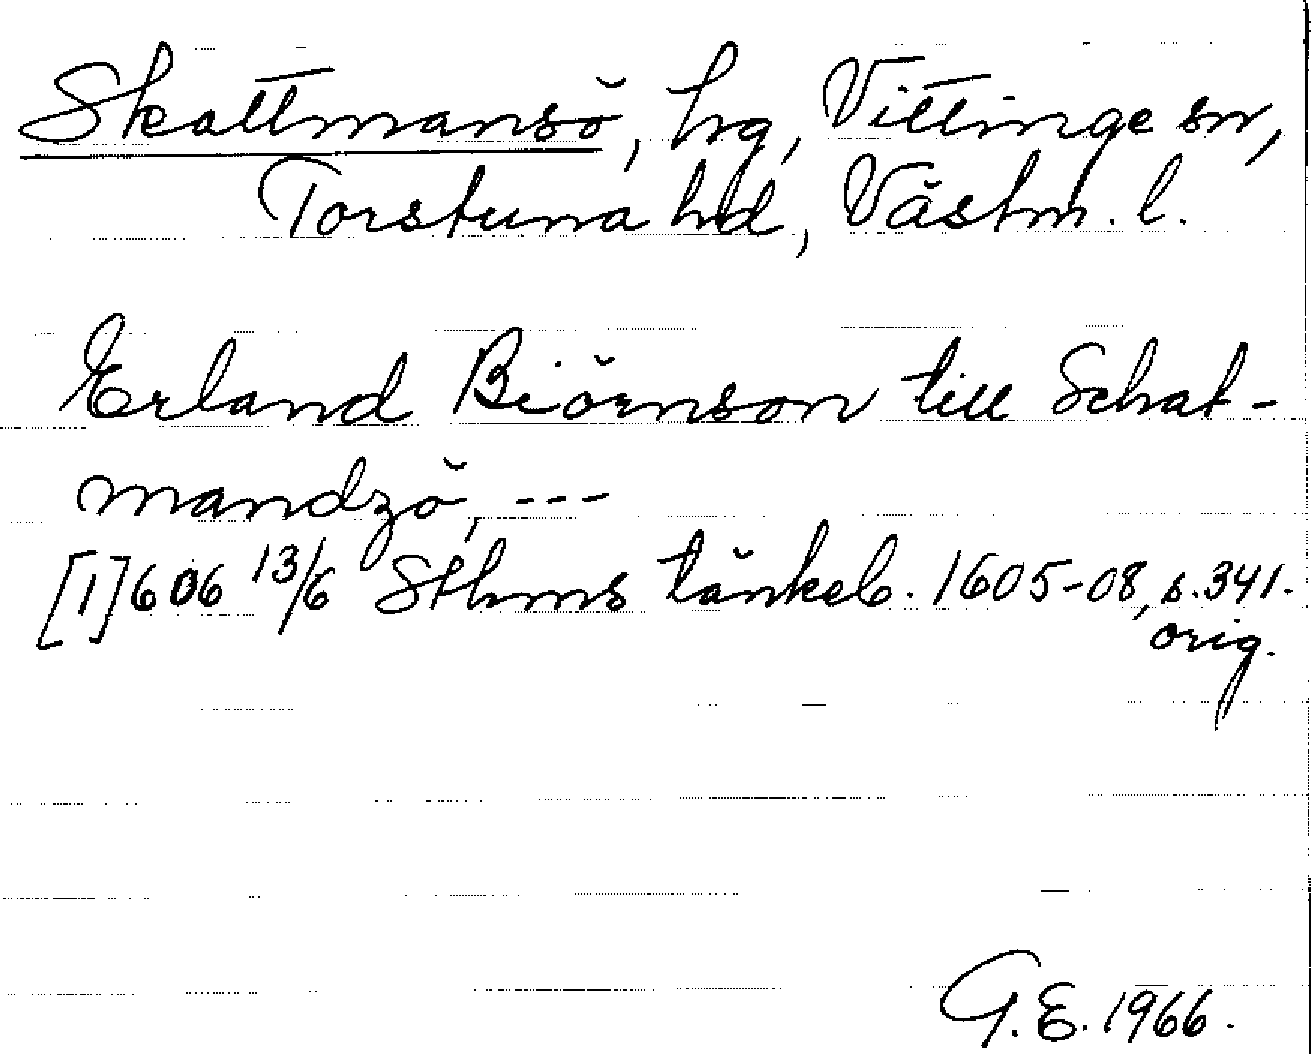 Skattmansö, hg, Vittinge sn,
Torstuna hd, Västm. l.
Erland Biörnson till Schat-
mandzö, ---
[1]606 13/6 Sthms tänkeb. 1605-08, s.341.
orig.
G.E. 1966.